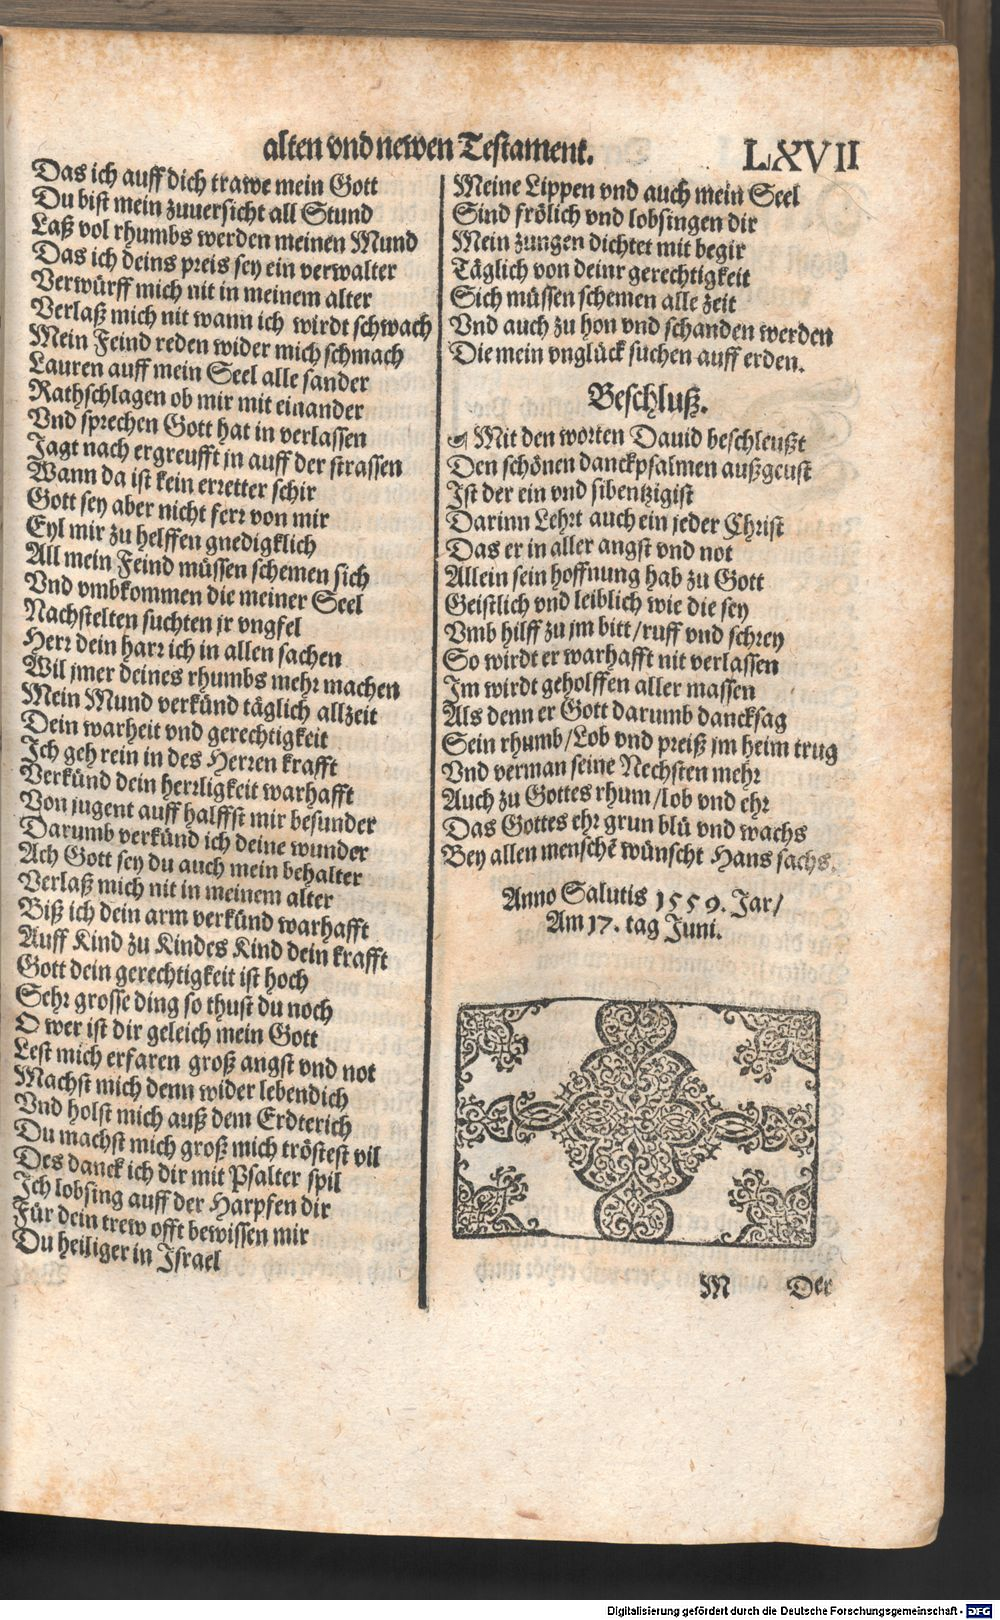 alten vnd newen Testament. LXVII
Das ich auff dich trawe mein Gott
Du bist mein zuuersicht all Stund
Laß vol rhumbs werden meinen Mund
Das ich deins preis sey ein verwalter
Verwürff mich nit in meinem alter
Verlaß mich nit wann ich wirdt schwach
Mein Feind reden wider mich schmach
Lauren auff mein Seel alle sander
Rathschlagen ob mir mit einander
Vnd sprechen Gott hat in verlassen
Jagt nach ergreufft in auff der strassen
Wann da ist kein erretter schir
Gott sey aber nicht ferr von mir
Eyl mir zu helffen gnedigklich
All mein Feind müssen schemen sich
Vnd vmbkommen die meiner Seel
Nachstelten suchten jr vngfel
Herr dein harr ich in allen sachen
Wil jmer deines rhumbs mehr machen
Mein Mund verkünd täglich allzeit
Dein warheit vnd gerechtigkeit
Ich geh rein in des Herren krafft
Verkünd dein herrligkeit warhafft
Von jugent auff halffst mir besunder
Darumb verkünd ich deine wunder
Ach Gott sey du auch mein behalter
Verlaß mich nit in meinem alter
Biß ich dein arm verkünd warhafft
Auff Kind zu Kindes Kind dein krafft
Gott dein gerechtigkeit ist hoch
Sehr grosse ding so thust du noch
O wer ist dir geleich mein Gott
Lest mich erfaren groß angst vnd not
Machst mich denn wider lebendich
Vnd holst mich auß dem Erdterich
Du machst mich groß mich tröstest vil
Des danck ich dir mit Psalter spil
Ich lobsing auff der Harpfen dir
Für dein trew offt bewissen mir
Du heiliger in Israel
Meine Lippen vnd auch mein Seel
Sind frölich vnd lobsingen dir
Mein zungen dichtet mit begir
Täglich von deinr gerechtigkeit
Sich müssen schemen alle zeit
Vnd auch zu hon vnd schanden werden
Die mein vnglück suchen auff erden.
Beschluß.
☙ Mit den worten Dauid beschleußt
Den schönen danckpsalmen außgeust
Ist der ein vnd sibentzigist
Darinn Lehrt auch ein jeder Christ
Das er in aller angst vnd not
Allein sein hoffnung hab zu Gott
Geistlich vnd leiblich wie die sey
Vmb hilff zu jm bitt/ruff vnd schrey
So wirdt er warhafft nit verlassen
Im wirdt geholffen aller massen
Als denn er Gott darumb dancksag
Sein rhumb/Lob vnd preiß jm heim trug
Vnd verman seine Nechsten mehr
Auch zu Gottes rhum/lob vnd ehr
Das Gottes ehr grun blü vnd wachs
Bey allen menschē wünscht Hans sachs.
Anno Salutis 1559. Jar/
Am 17. tag Juni.
M Der
Digitalisierung gefördert durch die Deutsche Forschungsgemeinschaft - DFG